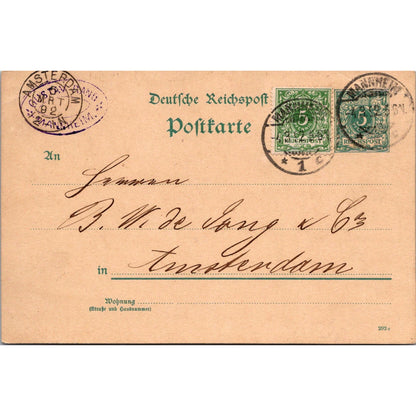 AMSTERDAM
MRT
92
MANNHEIM.
Deutsche Reichspost
Postkarte
MANNHEIM
5
5
REICHSPOST
1 c
An
Herren
B. W. de Jong & Co
in Amsterdam
Wohnung
(Straße und Hausnummer)